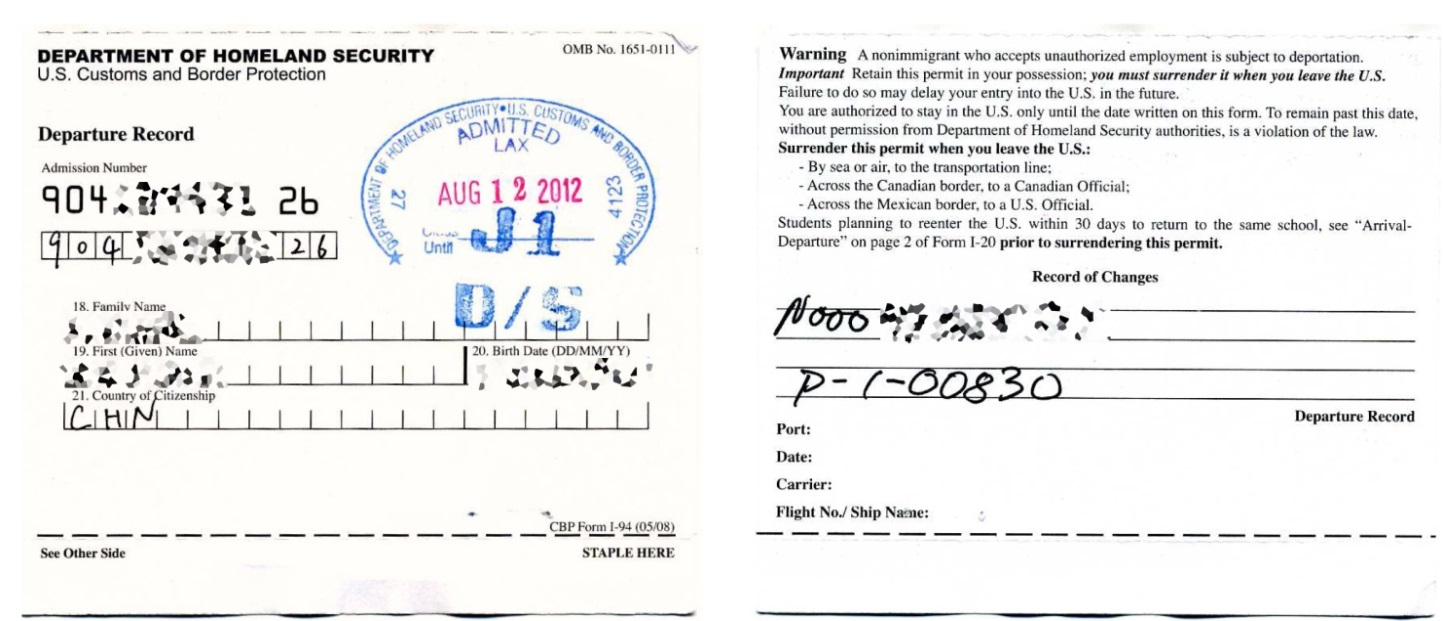 DEPARTMENT OF HOMELAND SECURITY
OMB No. 1651-0111
U.S. Customs and Border Protection
Departure Record
Admission Number
904 26
904 26
DEPARTMENT OF HOMELAND SECURITY • U.S. CUSTOMS AND BORDER PROTECTION
ADMITTED
LAX
27
AUG 12 2012
4123
Until
J1
D/S
18. Family Name
19. First (Given) Name
20. Birth Date (DD/MM/YY)
21. Country of Citizenship
CHN
CBP Form I-94 (05/08)
See Other Side
STAPLE HERE
Warning A nonimmigrant who accepts unauthorized employment is subject to deportation.
Important Retain this permit in your possession; you must surrender it when you leave the U.S.
Failure to do so may delay your entry into the U.S. in the future.
You are authorized to stay in the U.S. only until the date written on this form. To remain past this date,
without permission from Department of Homeland Security authorities, is a violation of the law.
Surrender this permit when you leave the U.S.:
- By sea or air, to the transportation line;
- Across the Canadian border, to a Canadian Official;
- Across the Mexican border, to a U.S. Official.
Students planning to reenter the U.S. within 30 days to return to the same school, see “Arrival-
Departure” on page 2 of Form I-20 prior to surrendering this permit.
Record of Changes
N000
P-1-00830
Departure Record
Port:
Date:
Carrier:
Flight No./ Ship Name: